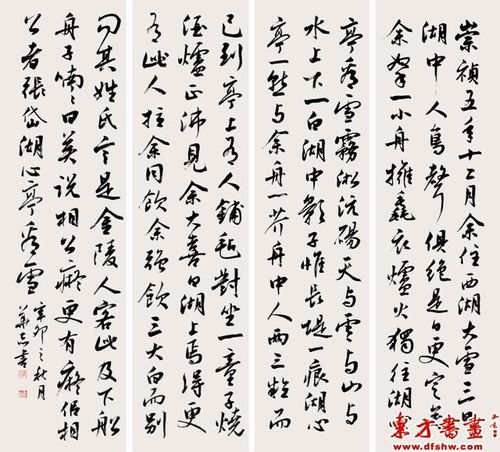 崇禎五年十二月余住西湖大雪三日
湖中人鳥聲俱絕是日更定矣
余拏一小舟擁毳衣爐火獨往湖心
亭看雪霧淞沆碭天與雲與山與
水上下一白湖中影子惟長堤一痕湖心
亭一點與余舟一芥舟中人兩三粒而
已到亭上有人鋪氈對坐一童子燒
酒爐正沸見余大喜曰湖上焉得更
有此人拉余同飲余強飲三大白而別
問其姓氏言是金陵人客此及下船
舟子喃々曰莫說相公癡更有癡似相
公者張岱湖心亭看雪
辛卯之秋月
東方書畫
www.dfshw.com